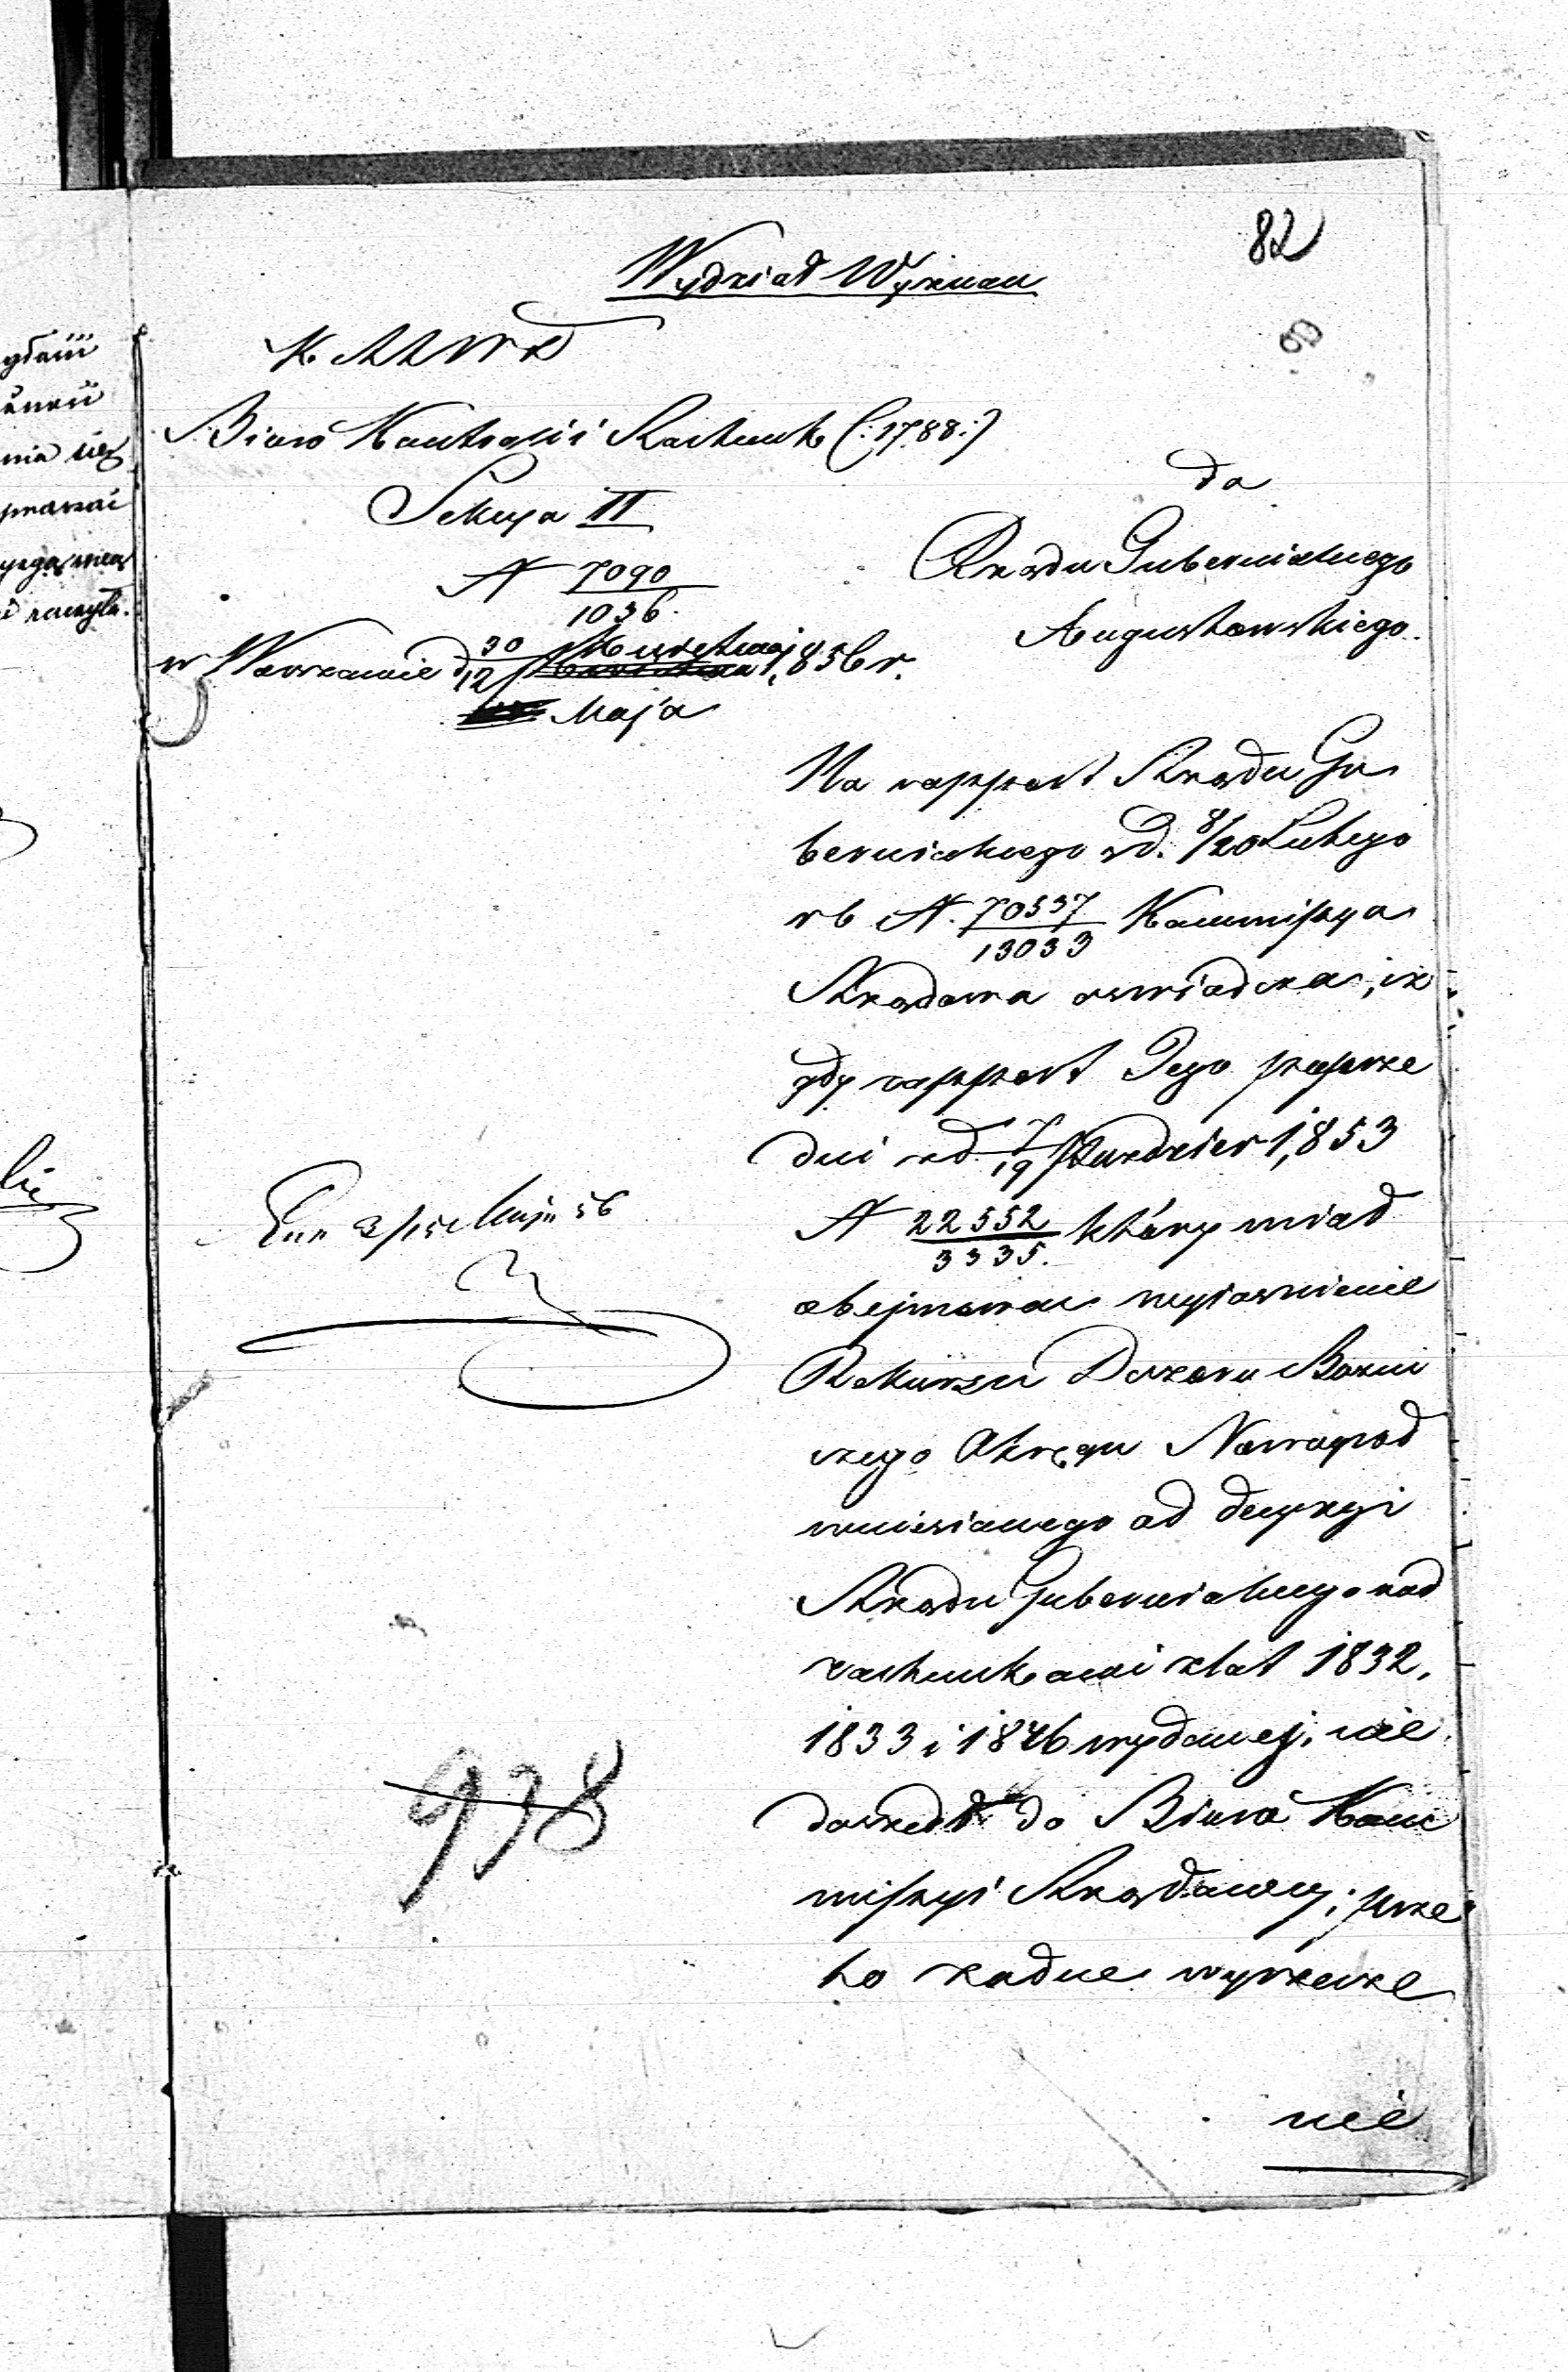 82
Wydział Wyznań
K. R. S. W. D
Biuro Kontroli i Rachunk (:1788:)
Sekcya II
N 7090/1036.
w Warszawie d 30/12 Kwietnia 1,856 r.
Maja
do
Rządu Gubernialnego
Augustowskiego.
Na rapport Rządu Gu
bernialnego z d. 8/20 Lutego
r b N. 70537/13033 Kommissya
Rządowa oswiadcza, iż
gdy rapport Jego poprze
dni z d 7/19 Pazdzier 1,853
N 22552/3335. który miał
obejmować wyiasnienie
Rekursu Dozoru Bożni
czego Okręgu Nowogrod
wniesionego od decyzyi
Rządu Gubernialnego nad
rachunkami z lat 1832,
1833 i 1846 wydanej, nie
doszedł do Biura Kom
missyi Rządowey; prze
to żadne wyrzecze
nie
Maja 56
938